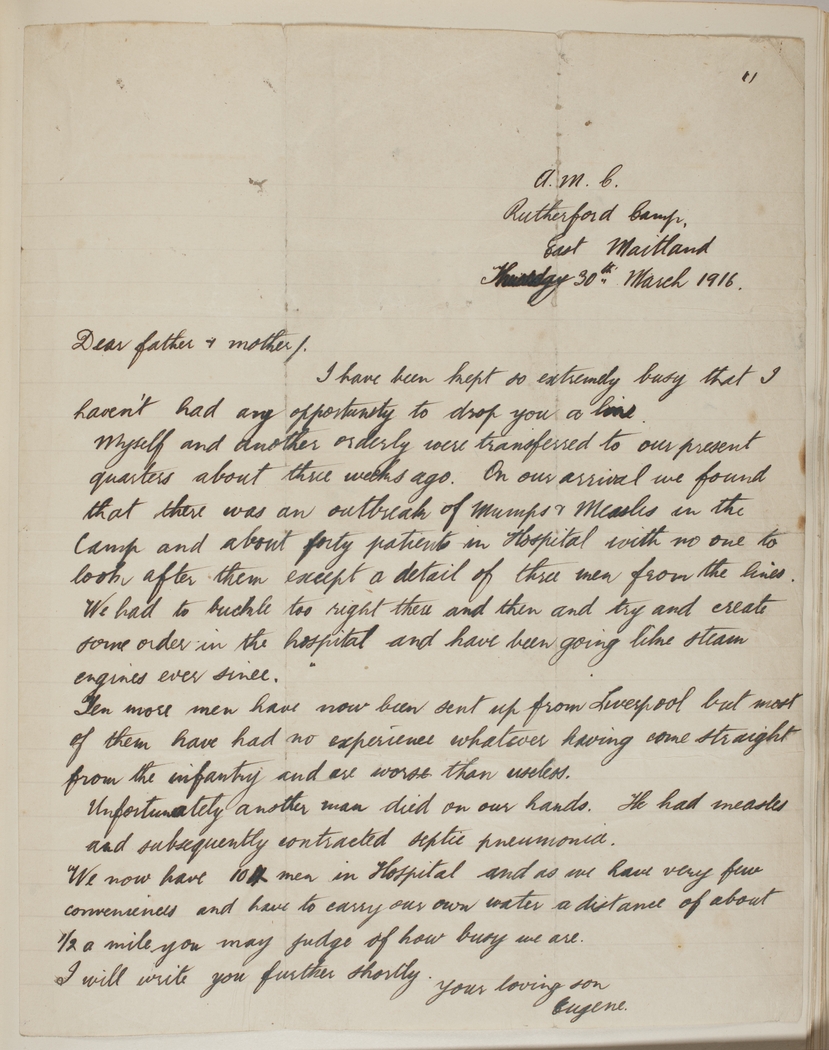 A. M. C.
Rutherford Camp,
East Maitland
30th March 1916.
Dear father & mother/.
I have been kept so extremely busy that I
haven't had any opportunity to drop you a line.
Myself and another orderly were transferred to our present
quarters about three weeks ago. On our arrival we found
that there was an outbreak of Mumps & Measles in the
Camp and about forty patients in Hospital with no one to
look after them except a detail of three men from the lines.
We had to buckle too right there and then and try and create
some order in the hospital and have been going like steam
engines ever since.
Ten more men have now been sent up from Liverpool but most
of them have had no experience whatever having come straight
from the infantry and are worse than useless.
Unfortunately another man died on our hands. He had measles
and subsequently contracted septic pneumonia.
We now have men in Hospital and as we have very few
conveniences and have to carry our own water a distance of about
1/2 a mile you may judge of how busy we are.
I will write you further shortly.
Your loving son
Eugene.